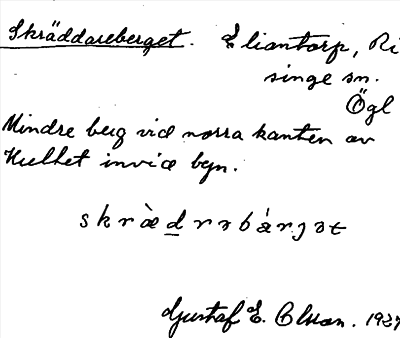 Skräddareberget. Eliantorp, Ri
singe sn.
Ögl
Mindre berg vid norra kanten av
Kulhet invid byn.
skræ̀drəbárɟət
Gustaf E. Olsson. 1927